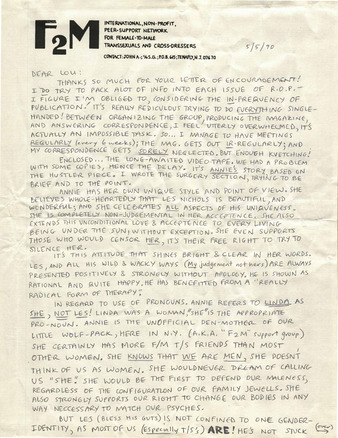 F2M
INTERNATIONAL, NON-PROFIT,
PEER-SUPPORT NETWORK
FOR FEMALE-TO-MALE
TRANSSEXUALS AND CROSS-DRESSERS
CONTACT: JOHNNY A.; P.O.B. TENAFLY, N.J. 07670
DEAR LOU:
THANKS SO MUCH FOR YOUR LETTER OF ENCOURAGEMENT!
I DO TRY TO PACK ALOT OF INFO INTO EACH ISSUE OF R.O.P. -
I FIGURE I'M OBLIGED TO, CONSIDERING THE IN-FREQUENCY OF
PUBLICATION. IT'S REALLY RIDICULOUS TRYING TO DO EVERYTHING SINGLE-
HANDED! BETWEEN ORGANIZING THE GROUP, PRODUCING THE MAGAZINE,
AND ANSWERING CORRESPONDENCE, I FEEL UTTERLY OVERWHELMED. IT'S
ACTUALLY AN IMPOSSIBLE TASK. SO... I MANAGE TO HAVE MEETINGS
REGULARLY (every 6 weeks); THE MAG. GETS OUT IR-REGULARLY; AND
MY CORRESPONDENCE GETS SORELY NEGLECTED. BUT ENOUGH KVETCHING!
ENCLOSED... THE LONG-AWAITED VIDEO TAPE. WE HAD A PROBLEM
WITH SOME COPIES, HENCE THE DELAY. IT'S ANNIE'S STORY BASED ON
THE HUSTLER PIECE. I WROTE THE SURGERY SECTION, TRYING TO BE
BRIEF AND TO THE POINT.
ANNIE HAS HER OWN UNIQUE STYLE AND POINT OF VIEW. SHE
BELIEVES WHOLE-HEARTEDLY THAT LES NICHOLS IS BEAUTIFUL, AND
WONDERFUL; AND SHE CELEBRATES ALL ASPECTS OF HIS UNIQUENESS.
SHE IS COMPLETELY NON-JUDGEMENTAL IN HER ACCEPTANCE. SHE ALSO
EXTENDS THIS UNCONDITIONAL LOVE & ACCEPTANCE TO EVERY LIVING
BEING UNDER THE SUN, WITHOUT EXCEPTION. SHE EVEN SUPPORTS
THOSE WHO WOULD CENSOR HER, IT'S THEIR FREE RIGHT TO TRY TO
SILENCE HER.
IT'S THIS ATTITUDE, THAT SHINES BRIGHT & CLEAR IN HER WORDS.
LES, AND ALL HIS WILD & WACKY WAYS (My judgement is here) ARE ALWAYS
PRESENTED POSITIVELY & STRONGLY WITHOUT APOLOGY. HE IS SHOWN AS
RATIONAL AND QUITE HAPPY. HE HAS BENEFITED FROM A "REALLY
RADICAL FORM OF THERAPY."
IN REGARD TO USE OF PRONOUNS. ANNIE REFERS TO LINDA AS
SHE, NOT LES! LINDA WAS A WOMAN, "SHE" IS THE APPROPRIATE
PRO-NOUN. ANNIE IS THE UNOFFICIAL DEN-MOTHER OF OUR
LITTLE WOLF-PACK, HERE IN N.Y. (A.K.A. "F2M" support group)
SHE CERTAINLY HAS MORE F/M T/S FRIENDS THAN MOST
OTHER WOMEN. SHE KNOWS THAT WE ARE MEN, SHE DOESN'T
THINK OF US AS WOMEN. SHE WOULD NEVER DREAM OF CALLING
US "SHE". SHE WOULD BE THE FIRST TO DEFEND OUR MALENESS,
REGARDLESS OF THE CONFIGURATION OF OUR FAMILY JEWELS. SHE
ALSO STRONGLY SUPPORTS OUR RIGHT TO CHANGE OUR BODIES IN ANY
WAY NECESSARY TO MATCH OUR PSYCHES.
BUT LES (BLESS HIS GUTS) IS NOT CONFINED TO ONE GENDER-
IDENTITY, AS MOST OF US (especially T/S's) ARE! HE'S NOT STUCK